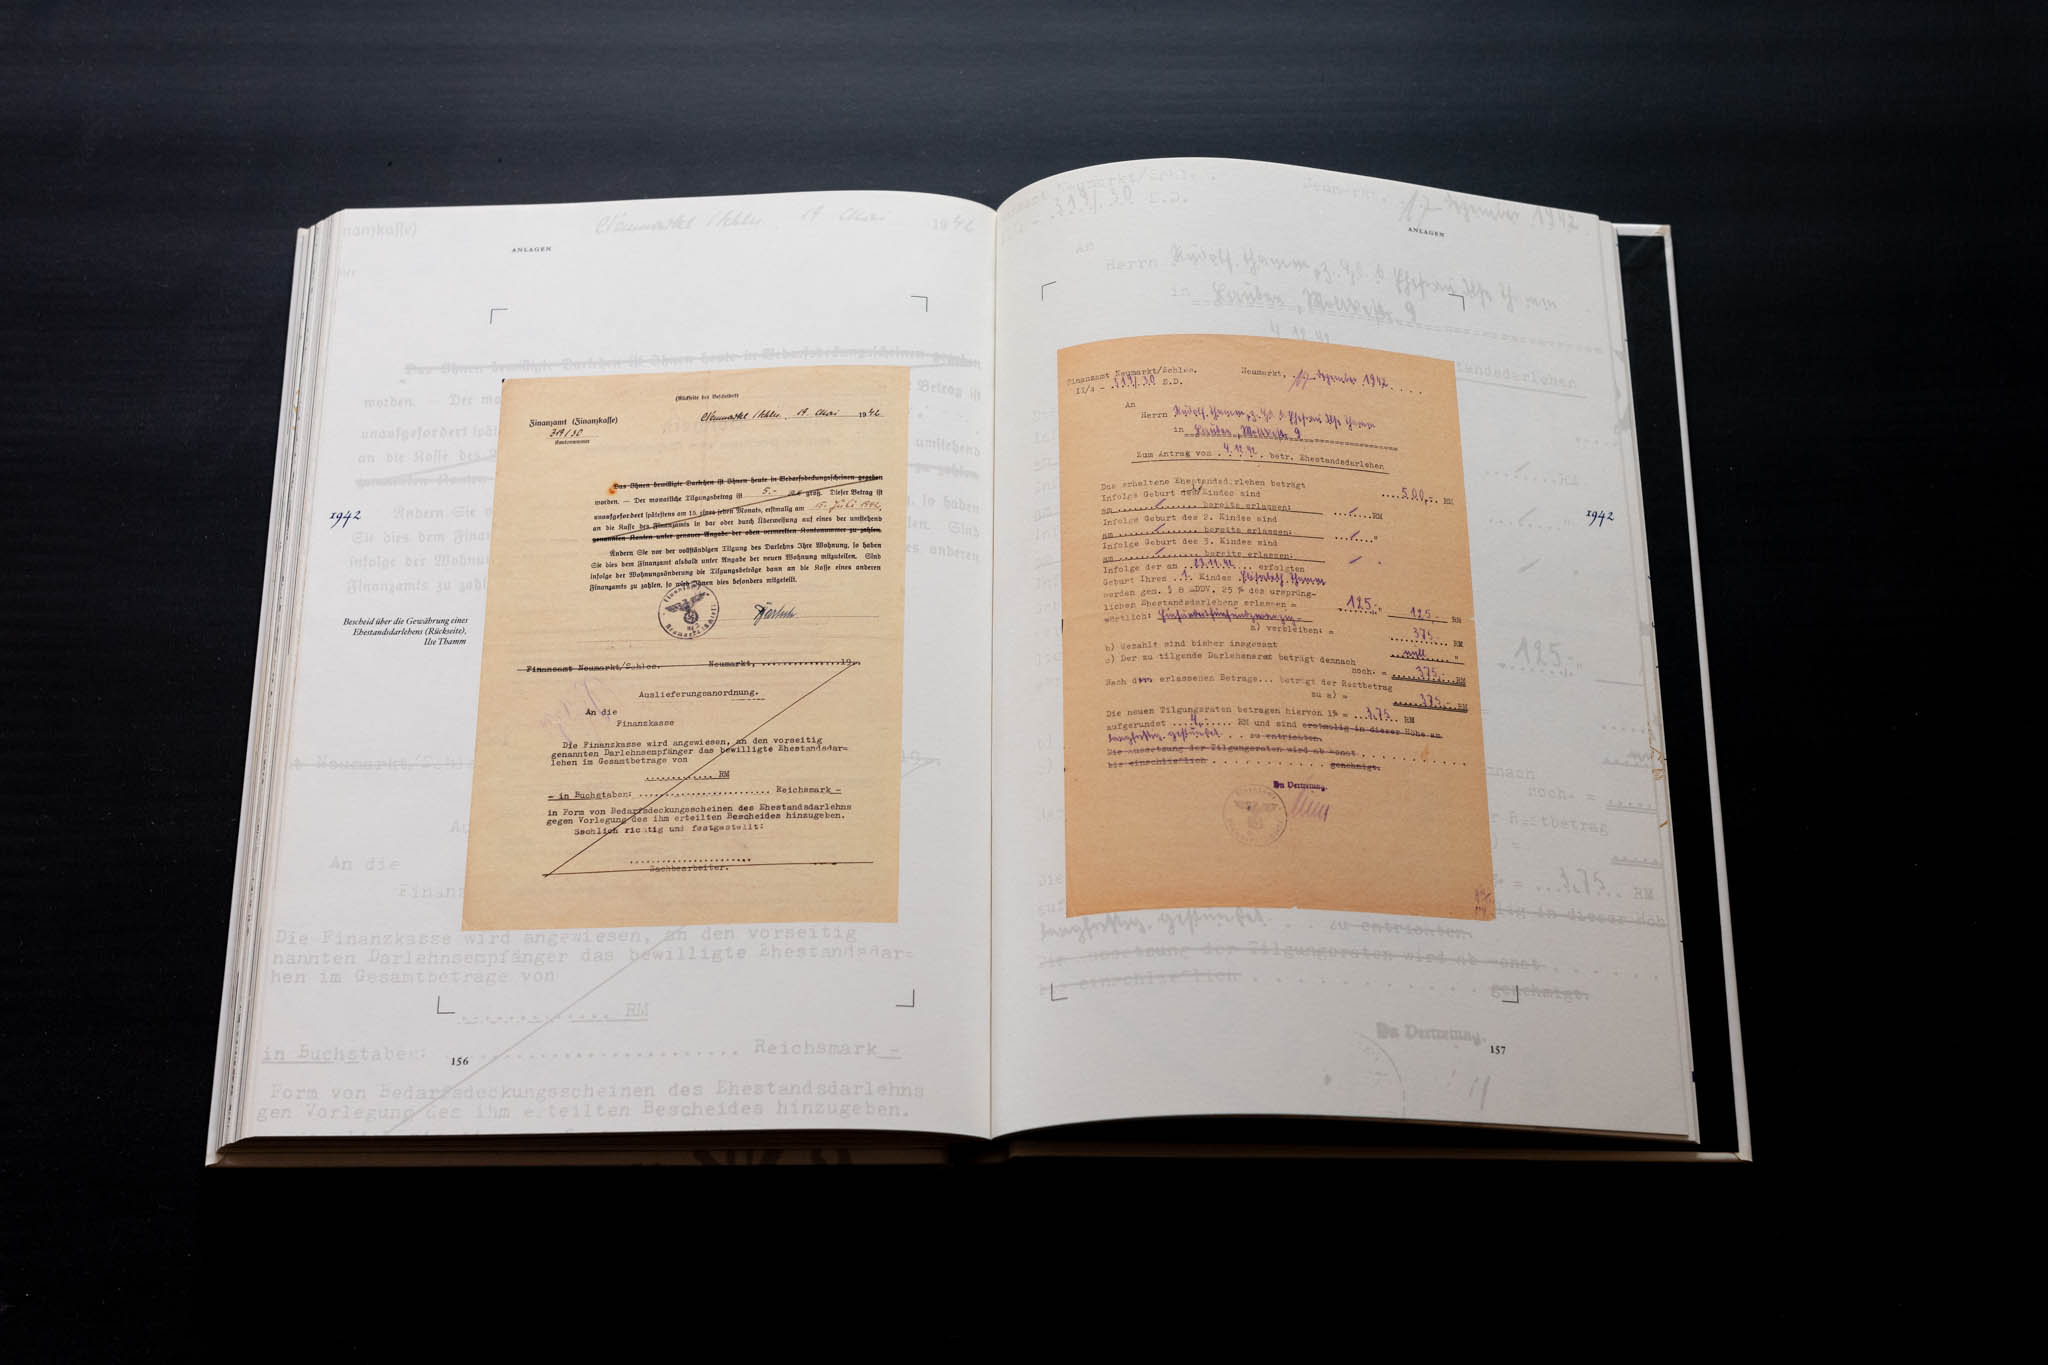 ANLAGEN
1942
Bescheid über die Gewährung eines
Ehestandsdarlehens (Rückseite),
Ilse Thamm
(Rückseite des Bescheides)
Finanzamt (Finanzkasse)
319/30
Kontonummer
Neumarkt Schles. 19. Mai 1942
Das Ihnen bewilligte Darlehen ist Ihnen heute in Bedarfsdeckungsscheinen gegeben
worden. — Der monatliche Tilgungsbetrag ist 5.- RM groß. Dieser Betrag ist
unaufgefordert spätestens am 15. eines jeden Monats, erstmalig am 15. Juli 1942,
an die Kasse des Finanzamts in bar oder durch Überweisung auf eines der umstehend
genannten Konten unter genauer Angabe der oben vermerkten Kontonummer zu zahlen.
Ändern Sie vor der vollständigen Tilgung des Darlehns Ihre Wohnung, so haben
Sie dies dem Finanzamt alsbald unter Angabe der neuen Wohnung mitzuteilen. Sind
infolge der Wohnungsänderung die Tilgungsbeträge dann an die Kasse eines anderen
Finanzamts zu zahlen, so wird Ihnen dies besonders mitgeteilt.
Finanzamt Neumarkt/Schles. Neumarkt, ..............19..
Auslieferungsanordnung.
An die
Finanzkasse
Die Finanzkasse wird angewiesen, an den vorseitig
genannten Darlehnsempfänger das bewilligte Ehestandsdar=
lehen im Gesamtbetrage von
............. RM
- in Buchstaben: ....................... Reichsmark -
in Form von Bedarfsdeckungsscheinen des Ehestandsdarlehns
gegen Vorlegung des ihm erteilten Bescheides hinzugeben.
Sachlich richtig und festgestellt:
Sachbearbeiter.
156
ANLAGEN
Finanzamt Neumarkt/Schles.
II/4 - 319/30 E.D.
Neumarkt, 17. Dezember 1942
An
Herrn Rudolf Thamm, z. Hd. d. Ehefrau Ilse Thamm
in Lauban, Moltkestr. 9
Zum Antrag von 4.12.42 betr. Ehestandsdarlehen
Das erhaltene Ehestandsdarlehen beträgt ....500,-.. RM
Infolge Geburt des Kindes sind
am ............. bereits erlassen: ........RM
Infolge Geburt des 2. Kindes sind
am ............. bereits erlassen: ........"
Infolge Geburt des 3. Kindes sind
am ............. bereits erlassen:
Infolge der am 23.11.42 ... erfolgten
Geburt Ihres .1. Kindes Elisabeth Thamm
werden gem. § 8 EDDV. 25 % des ursprüng-
lichen Ehestandsdarlehens erlassen = 125,- " 125,- RM
wörtlich: Einhundertfünfundzwanzig-
a) verbleiben: = 375,- RM
b) Gezahlt sind bisher insgesamt null "
c) Der zu tilgende Darlehensrest beträgt demnach
noch. = 375,- RM
Nach dem erlassenen Betrage... beträgt der Restbetrag
zu a) = 375,- RM
Die neuen Tilgungsraten betragen hiervon 1% = 3,75 RM
aufgerundet ...4,-..... RM und sind erstmalig in dieser Höhe am
langfristig gestundet. . . zu entrichten.
Die Aussetzung der Tilgungsraten wird ab Monat . . . . . . .
bis einschließlich . . . . . . . . . . . genehmigt.
In Vertretung.
1942
157